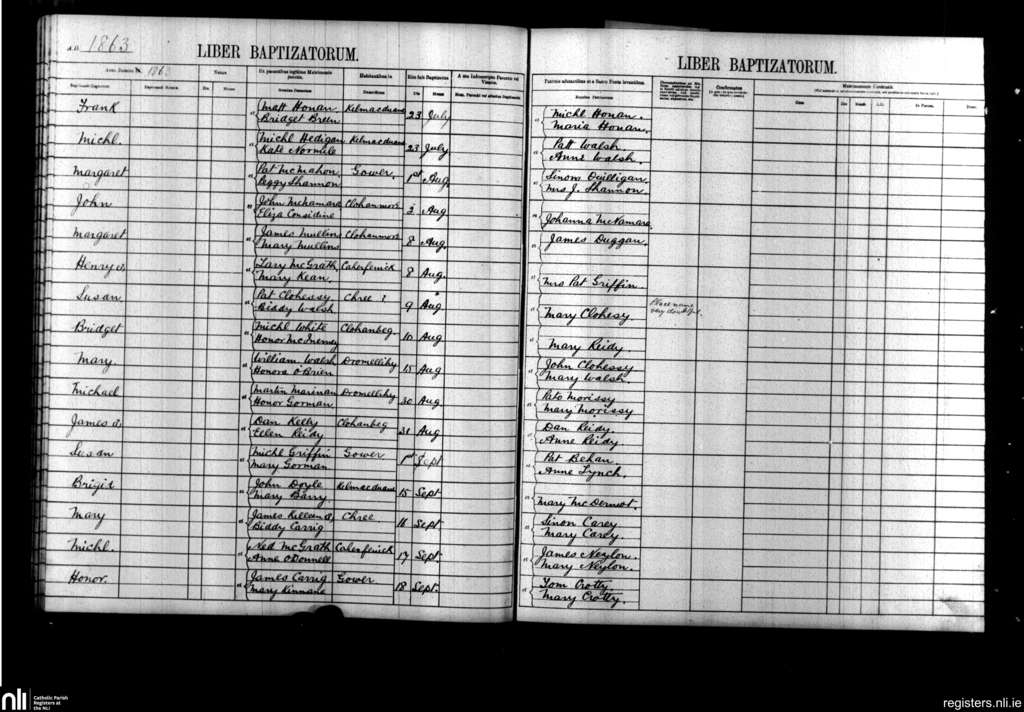 A.D. 1863
LIBER BAPTIZATORUM.
LIBER BAPTIZATORUM.
Anno Domini 1863
Natus
Ex parentibus legitimo Matrimonio junctis.
Habitantibus in
Dies
Mense
Die
Mense
Confirmatus
Matrimonium Contraxit
Frank Matt Honan Kilmacduane 23 July Michl Honan.
Bridget Breen Maria Honan.
Michl. Michl Hedigan Kilmacduane 23 July Patt Walsh.
Kate Normile Anne Walsh.
Margaret Pat McMahon, Gower, 1st Aug Sinon Quilligan
Peggy Shannon Mrs J. Shannon
John John McNamara Clohanmore 3 Aug
Eliza Considine Johanna McNamara
Margaret James Mullins Clohanmore 8 Aug. James Duggan.
Mary Mullins
Henry Lary McGrath Caherfenick 8 Aug.
Mary Kean. Mrs Pat Griffin.
Susan Pat Clohessy Chree ? 9 Aug Place name very doubtful.
Biddy Walsh Mary Clohesy.
Bridget Michl White Clohanbeg. 10 Aug
Honor McInerney Mary Reidy.
Mary. William Walsh Dromellihy 15 Aug John Clohessy
Honora O'Brien Mary Walsh.
Michael Martin Marinan Dromellihy 30 Aug. Pats Morissy
Honor Gorman Mary Morissy
James Dan Kelly Clohanbeg 31 Aug Dan Reidy.
Ellen Reidy Anne Reidy
Susan Michl Griffin Gower 1st Sept Pat Behan
Mary Gorman Anne Lynch.
Brigid John Doyle Kilmacduane 15 Sept
Mary Barry Mary McDermot.
Mary James Chree. 16 Sept Sinon Carey
Biddy Carrig Mary Carey.
Michl. Ned McGrath Caherfenick 17 Sept. James Neylon.
Anne O'Donnell Mary Neylon.
Honor. James Carrig Gower 18 Sept. Tom Crotty
Mary Kinnane Mary Crotty.
nli Catholic Parish
Registers at
the NLI
registers.nli.ie